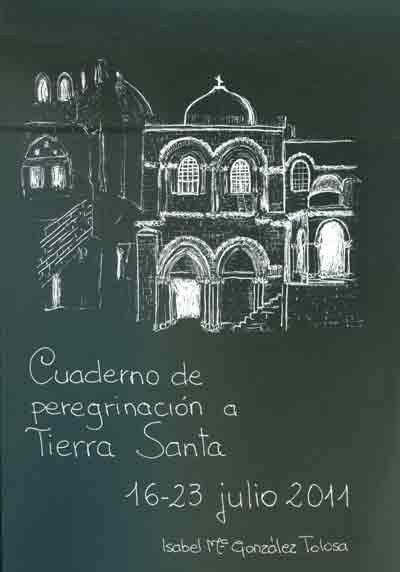 Cuaderno de
peregrinación a
Tierra Santa
16-23 julio 2011
Isabel Mª González Tolosa